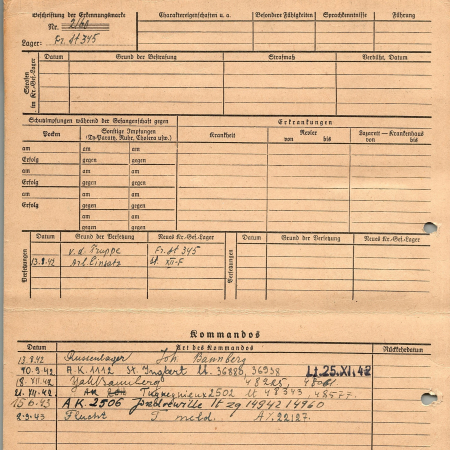 Beschriftung der Erkennungsmarke
Nr.
Lager: Fr. St 345
Charaktereigenschaften u. a.
Besondere Fähigkeiten
Sprachkenntnisse
Führung
Strafen im Kr.-Gef.-Lager
Datum
Grund der Bestrafung
Strafmaß
Verbüßt, Datum
Schutzimpfungen während der Gefangenschaft gegen
Erkrankungen
Pocken
Sonstige Impfungen (Ty-Paraty, Ruhr, Cholera usw.)
Krankheit
Revier von bis
Lazarett — Krankenhaus von bis
am am am
Erfolg gegen gegen
am am am
Erfolg gegen gegen
am am am
Erfolg gegen gegen
am am am
Erfolg gegen gegen
am am
gegen gegen
Versetzungen
Datum Grund der Versetzung Neues Kr.-Gef.-Lager
v. d. Truppe Fr. St 345
13.9.42 Arb. Einsatz St. XII-F
Versetzungen
Datum Grund der Versetzung Neues Kr.-Gef.-Lager
Kommandos
Datum Art des Kommandos Rückkehrdatum
13.9.42 Russenlager Joh. Bannberg
A.K. 1112 St. Ingbert Lt. 36888, 36938 Lt. 25. XI. 42
18. VII. 42
21. XII. 42 2502 lt 48343
15.6.43 A K 2506 lt zg 14942 14960
2.9.43 Flucht meld. 22127.